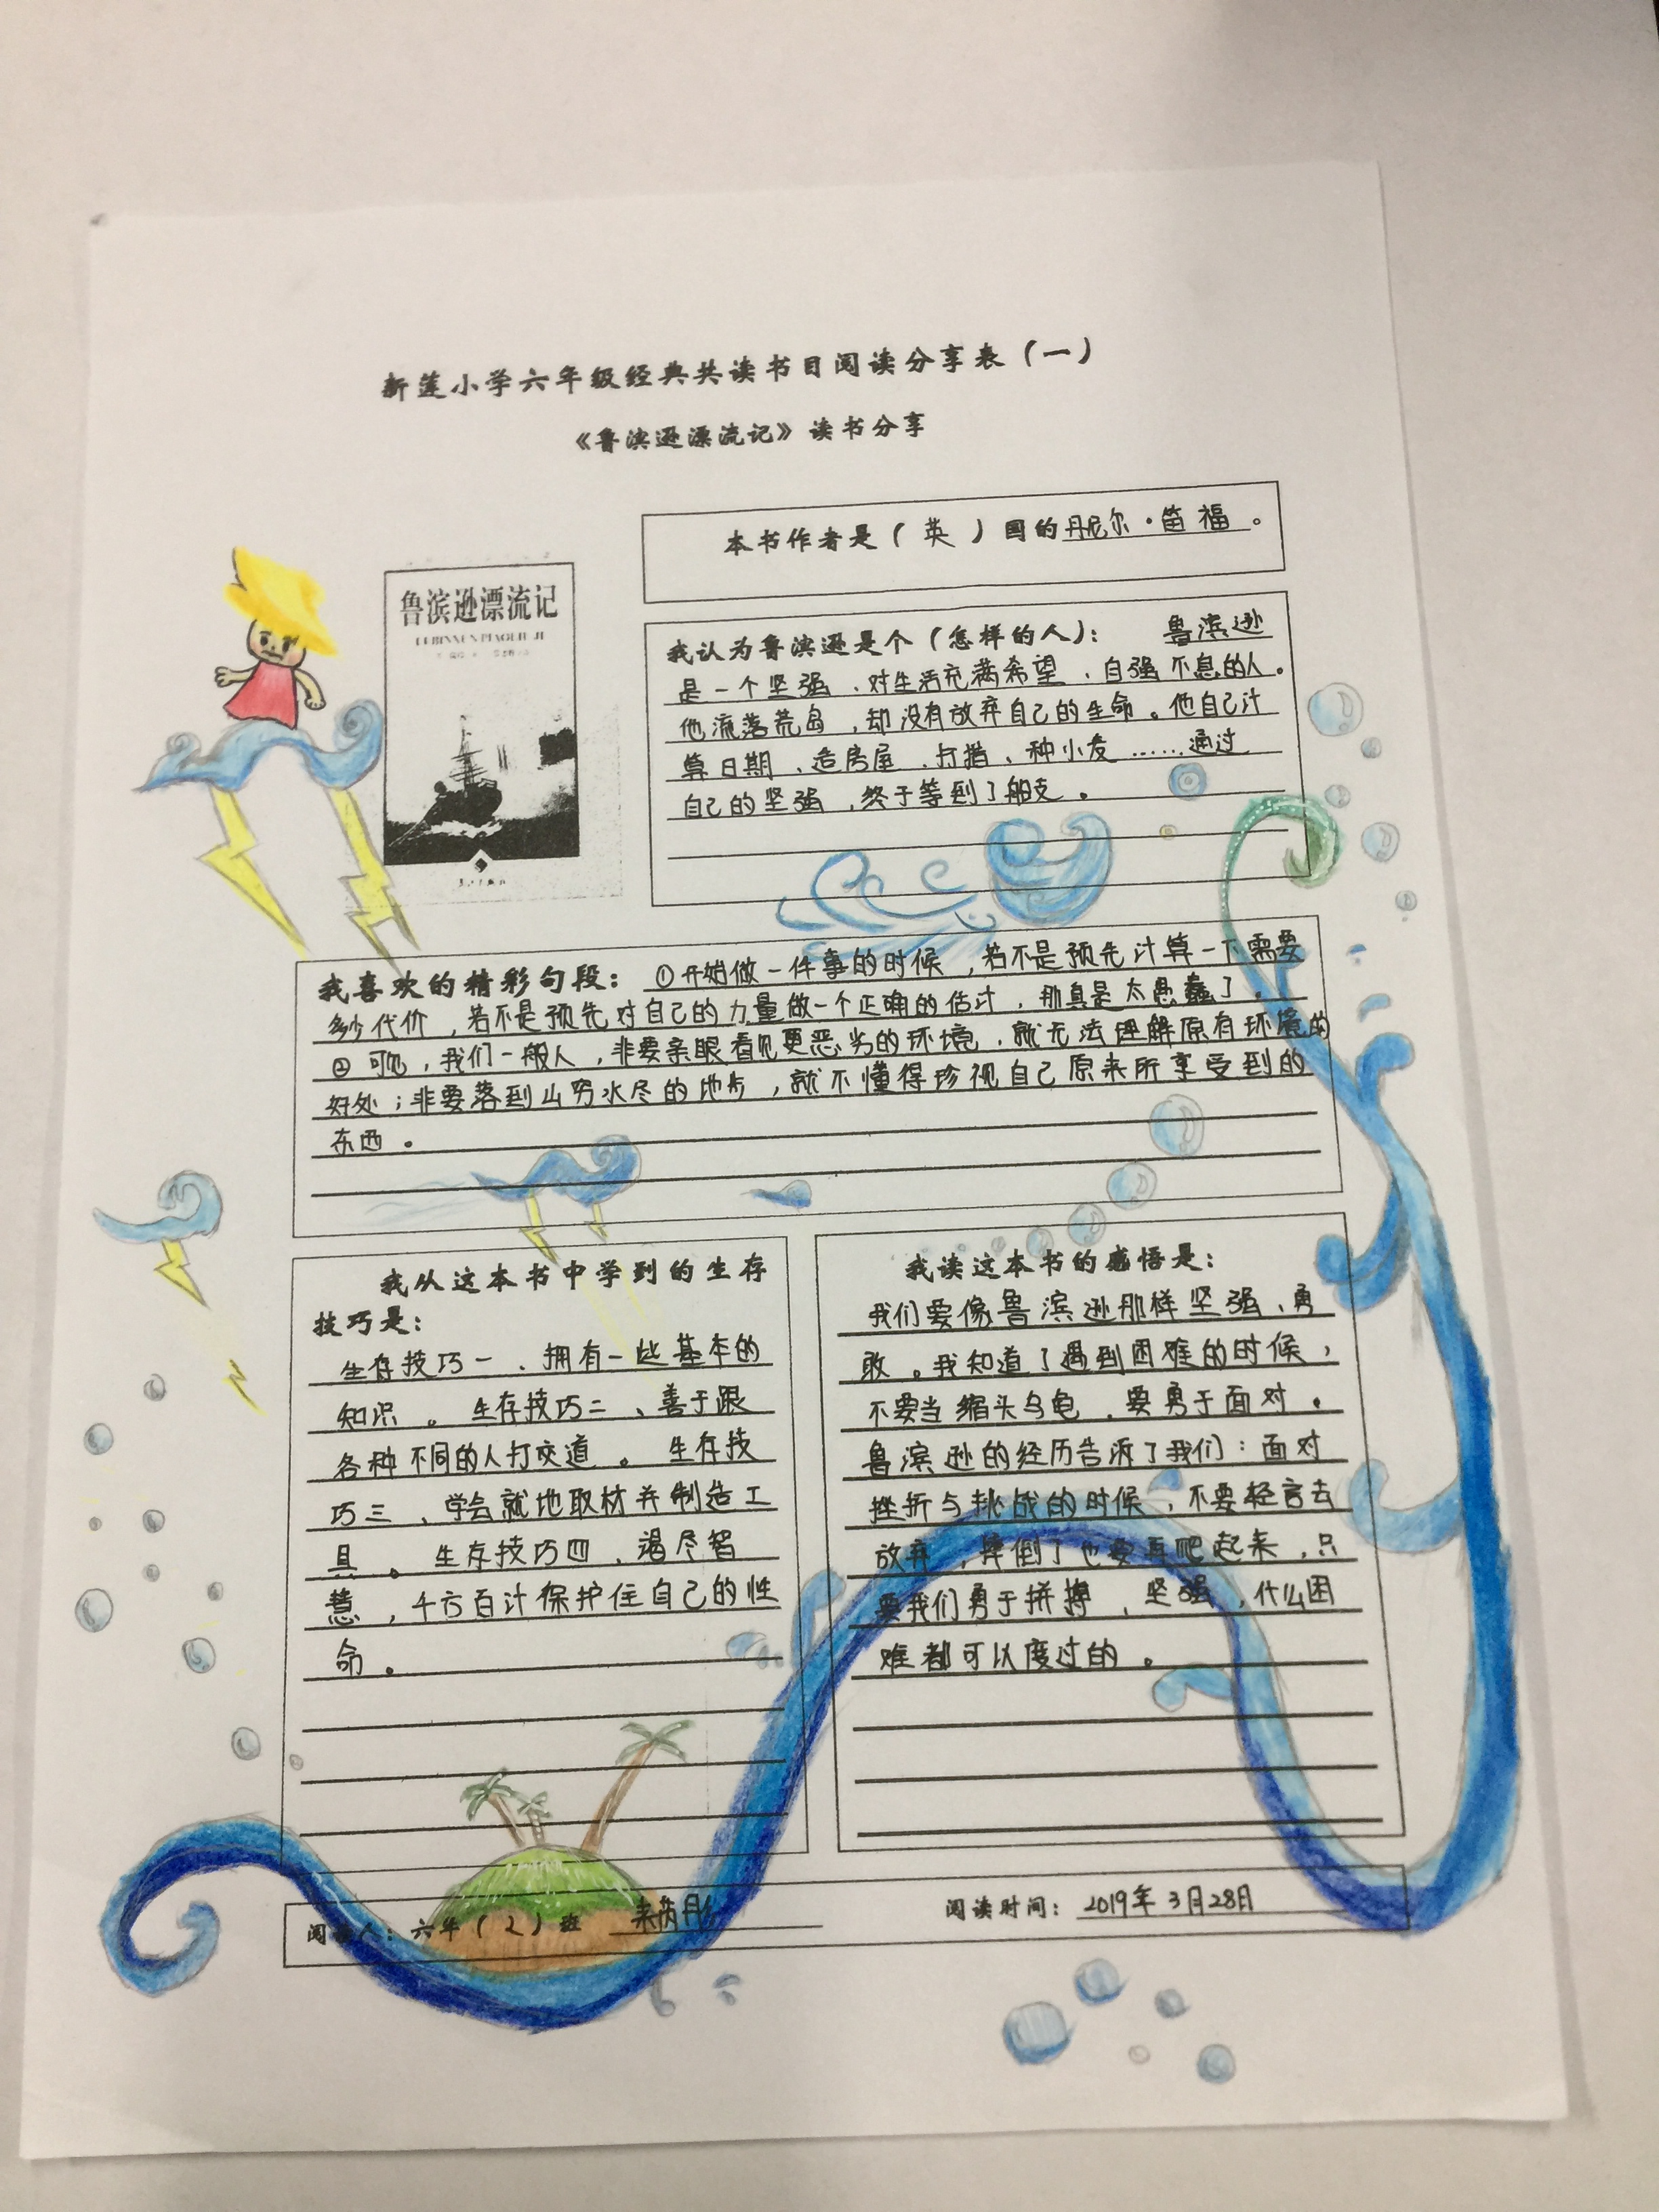 新莲小学六年级经典共读书目阅读分享表（一）
《鲁滨逊漂流记》读书分享
鲁滨逊漂流记
本书作者是（ 英 ）国的丹尼尔·笛福 。
我认为鲁滨逊是个（怎样的人）： 鲁滨逊
是一个坚强、对生活充满希望、自强不息的人。
他流落荒岛，却没有放弃自己的生命。他自己计
算日期、造房屋、打猎、种小麦……通过
自己的坚强，终于等到了船支。
我喜欢的精彩句段： ①开始做一件事的时候，若不是预先计算一下需要
多少代价，若不是预先对自己的力量做一个正确的估计，那真是太愚蠢了。
②可见，我们一般人，非要亲眼看见更恶劣的环境，就无法理解原有环境的
好处；非要落到山穷水尽的地步，就不懂得珍视自己原来所享受到的
东西。
我从这本书中学到的生存
技巧是：
生存技巧一、拥有一些基本的
知识。生存技巧二、善于跟
各种不同的人打交道。生存技
巧三、学会就地取材并制造工
具。生存技巧四、竭尽智
慧，千方百计保护住自己的性
命。
我读这本书的感悟是：
我们要像鲁滨逊那样坚强、勇
敢。我知道了遇到困难的时候，
不要当缩头乌龟，要勇于面对。
鲁滨逊的经历告诉了我们：面对
挫折与挑战的时候，不要轻言去
放弃，摔倒了也要再爬起来，只
要我们勇于拼搏，坚强，什么困
难都可以度过的。
阅读人：六年（ 2 ）班
阅读时间： 2019年3月28日